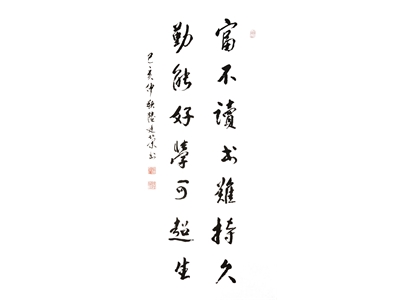 富不讀书難持久
勤能好學可超生
己亥仲秋